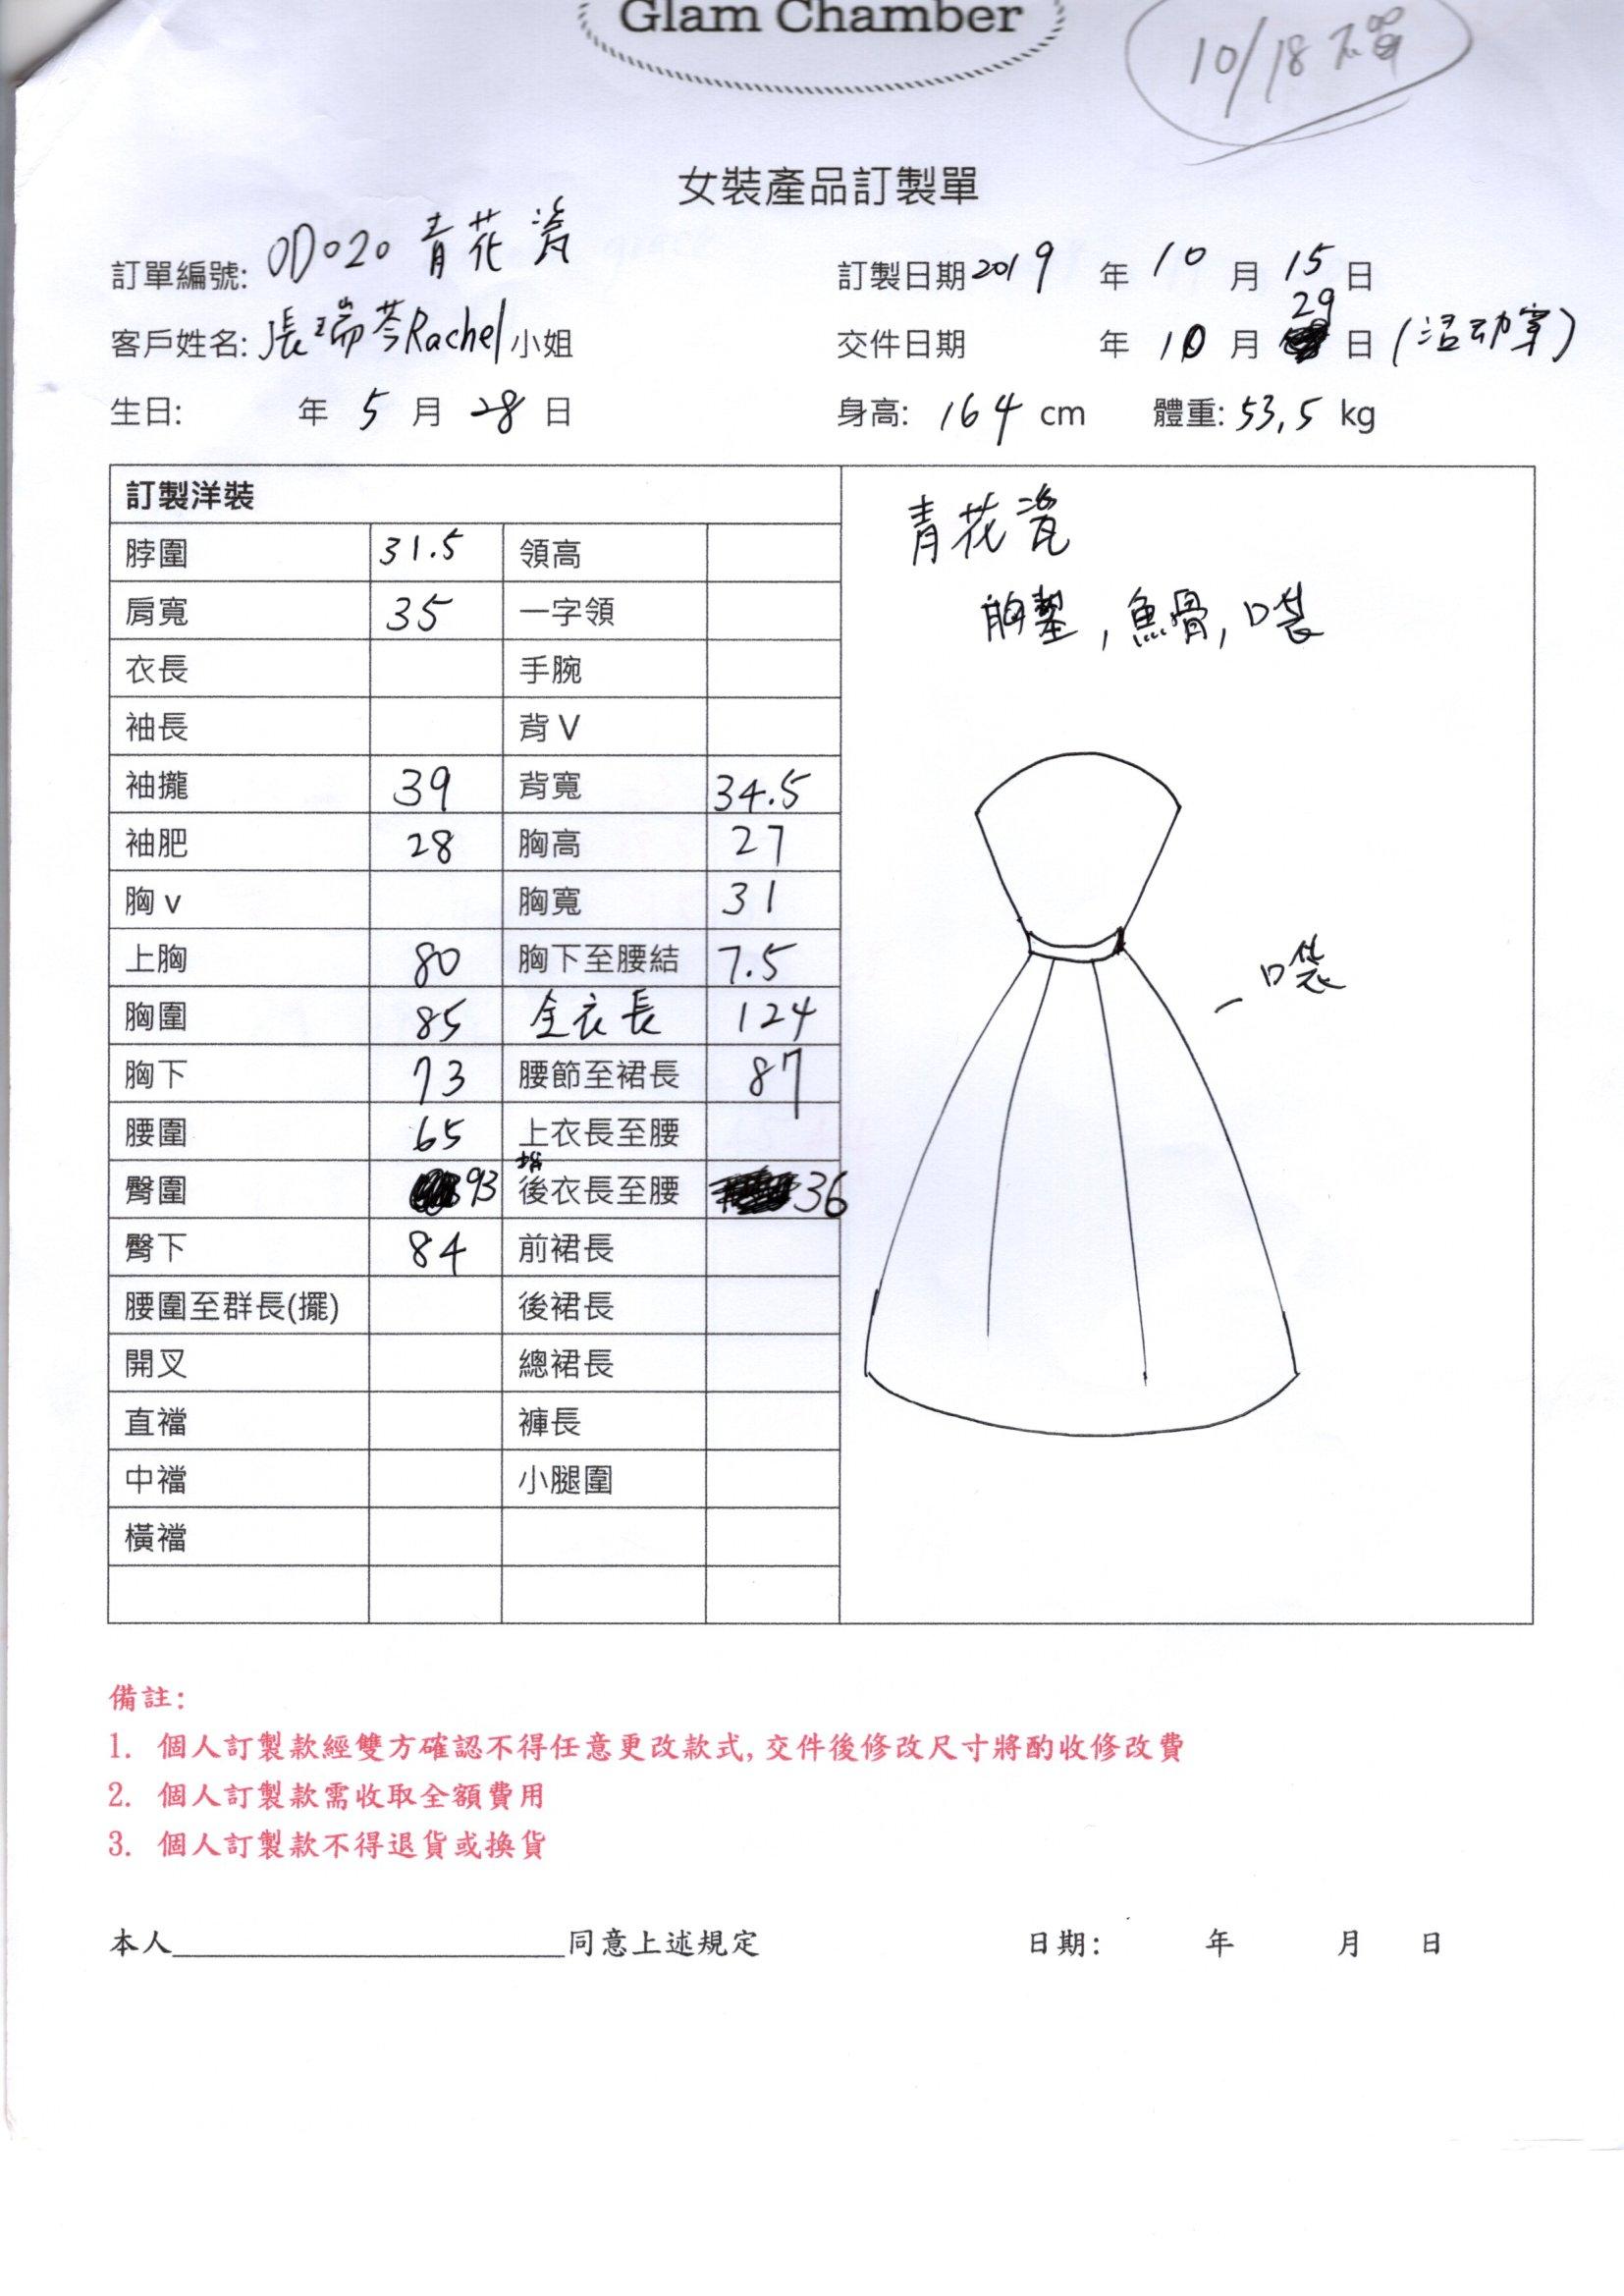 Glam Chamber
10/18 下單
女裝產品訂製單
訂單編號: OD020 青花瓷
訂製日期 2019 年 10 月 15 日
客戶姓名: 張瑞芩Rachel 小姐
交件日期 年 10 月 29 日 (活动穿)
生日: 年 5 月 28 日
身高: 164 cm 體重: 53,5 kg
訂製洋裝
脖圍 31.5 領高
肩寬 35 一字領
衣長 手腕
袖長 背 V
袖攏 39 背寬 34.5
袖肥 28 胸高 27
胸 v 胸寬 31
上胸 80 胸下至腰結 7.5
胸圍 85 全衣長 124
胸下 73 腰節至裙長 87
腰圍 65 上衣長至腰
臀圍 93 後衣長至腰 36
臀下 84 前裙長
腰圍至群長(擺) 後裙長
開叉 總裙長
直襠 褲長
中襠 小腿圍
橫襠
青花瓷
胸墊,魚骨,口袋
口袋
備註:
1. 個人訂製款經雙方確認不得任意更改款式,交件後修改尺寸將酌收修改費
2. 個人訂製款需收取全額費用
3. 個人訂製款不得退貨或換貨
本人 同意上述規定 日期: 年 月 日